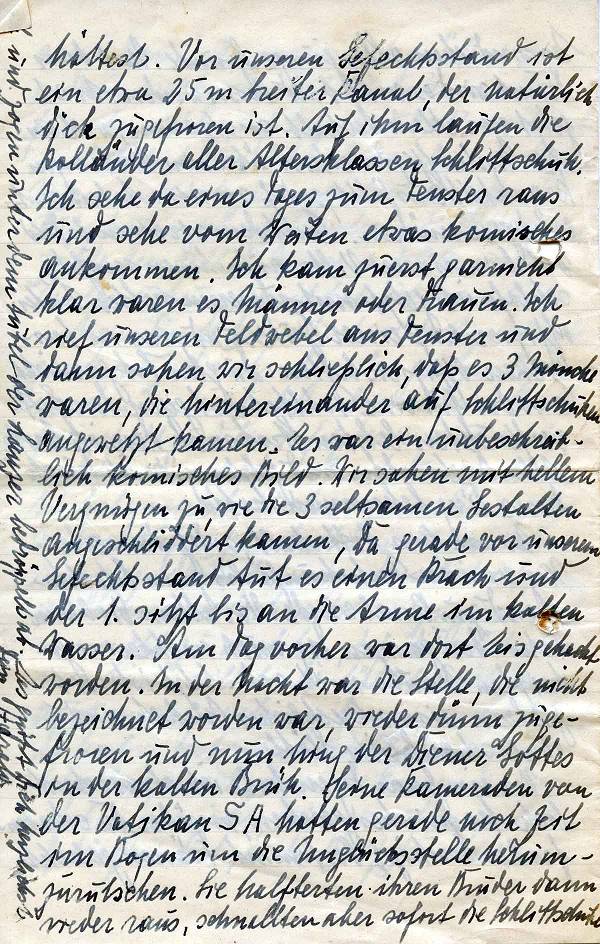 hättest. Vor unseren Gefechtsstand ist
ein etwa 25 m breiter Kanal, der natürlich
dick zugefroren ist. Auf ihm laufen die
Holländer aller Altersklassen Schlittschuh.
Ich sehe da eines Tages zum Fenster raus
und sehe vom Weiten etwas komisches
ankommen. Ich kam zuerst garnicht
klar waren es Männer oder Frauen. Ich
rief unseren Feldwebel ans Fenster und
dann sahen wir schließlich, daß es 3 Mönche
waren, die hintereinander auf Schlittschuhen
angewetzt kamen. Es war ein unbeschreib-
lich komisches Bild. Wir sahen mit hellem
Vergnügen zu, wie die 3 seltsamen Gestalten
angeschliddert kamen, da gerade vor unserem
Gefechtsstand tut es einen Krach und
der 1. sitzt bis an die Arme im kalten
Wasser. Am Tag vorher war dort Eis gehackt
worden. In der Nacht war die Stelle, die nicht
bezeichnet worden war, wieder dünn zuge-
froren und nun hing der Diener Gottes
in der kalten Brüh. Seine Kameraden von
der Vatikan SA hatten gerade noch Zeit
im Bogen um die Unglücksstelle herum-
zurutschen. Sie halfterten ihren Bruder dann
wieder raus, schnallten aber sofort die Schlittschuhe
und zogen unter dem Jubel der Landser bedrippelt ab. Es grüßt Dich herzlichst
Dein